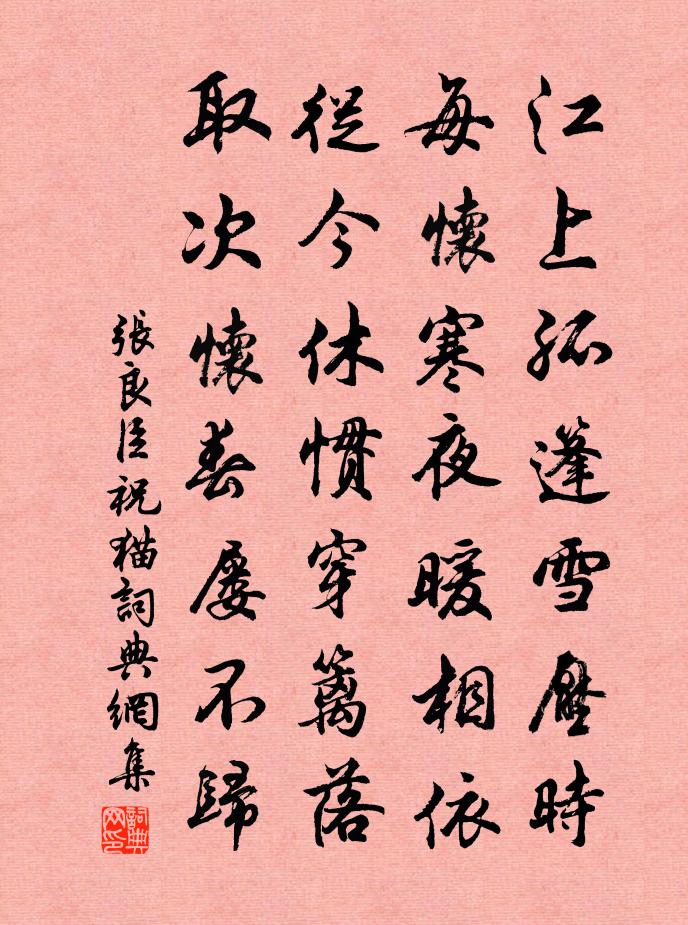 江上孤篷雪壓時
每懷寒夜暖相依
從今休慣穿籬落
取次懷春屡不歸
張良臣祝猫詞典網集
詞典网印